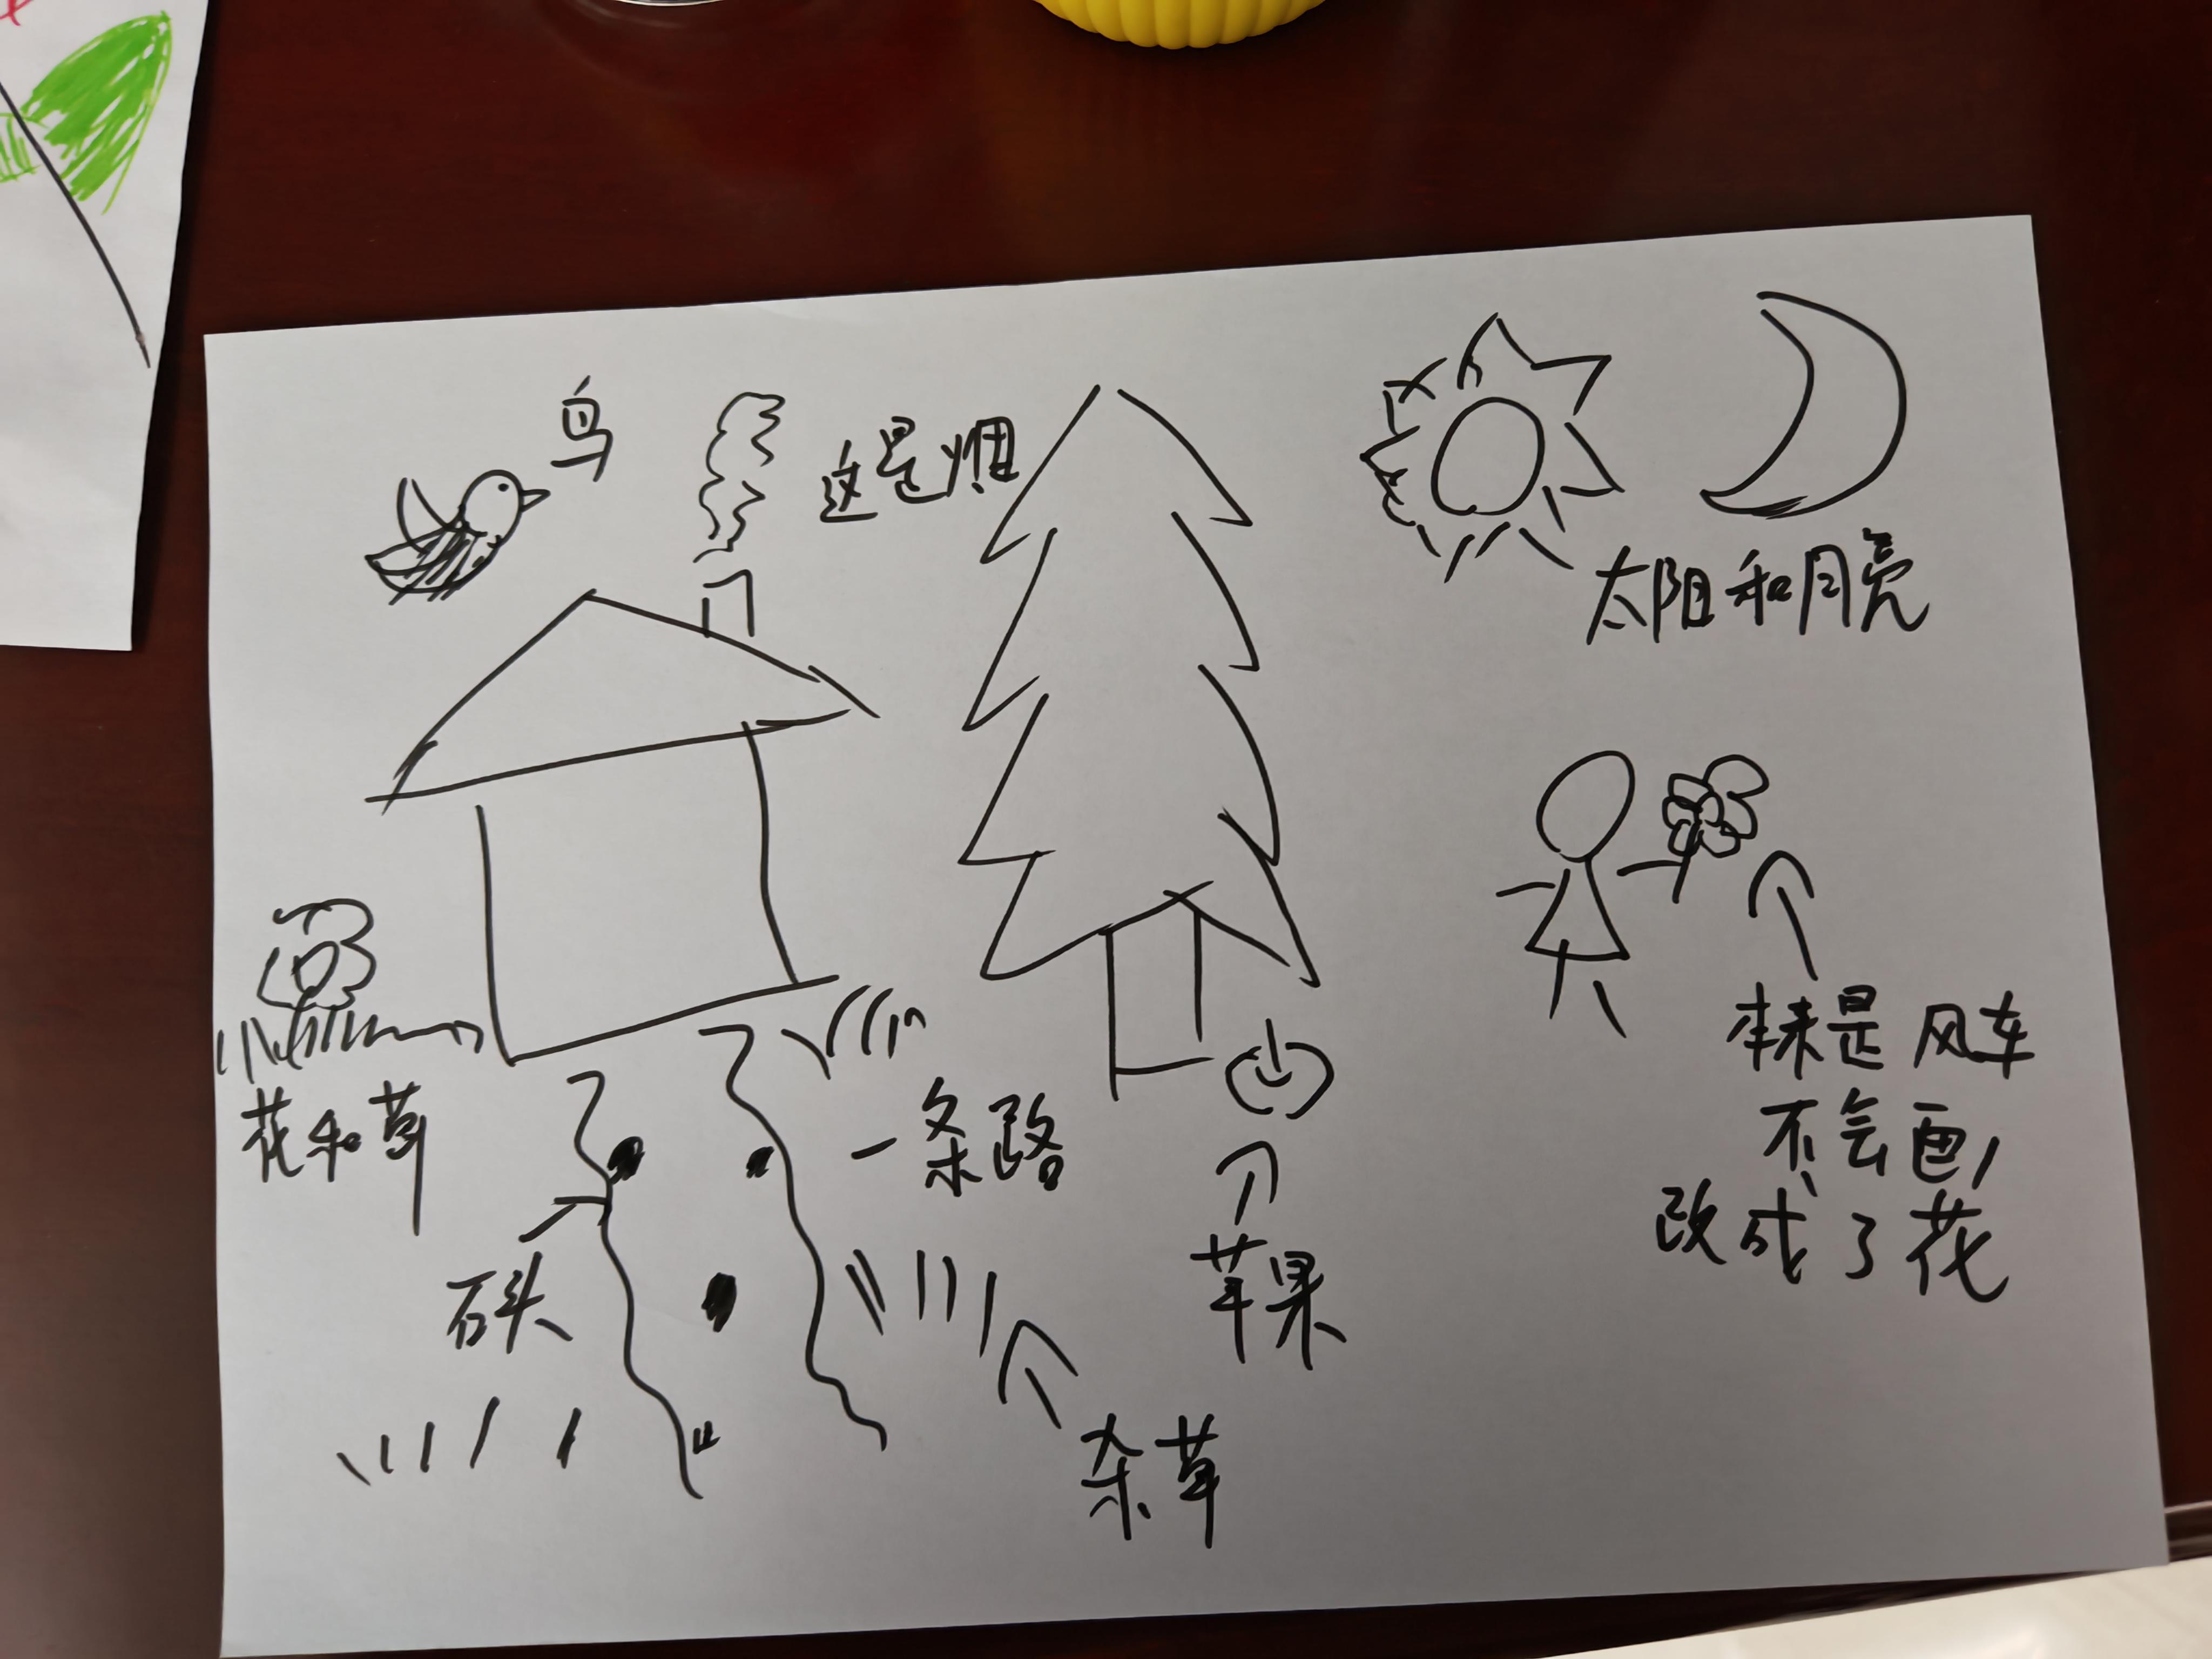 鸟
这是烟
太阳和月亮
本来是风车
不会画，
改成了花
花和草
一条路
石头
苹果
杂草